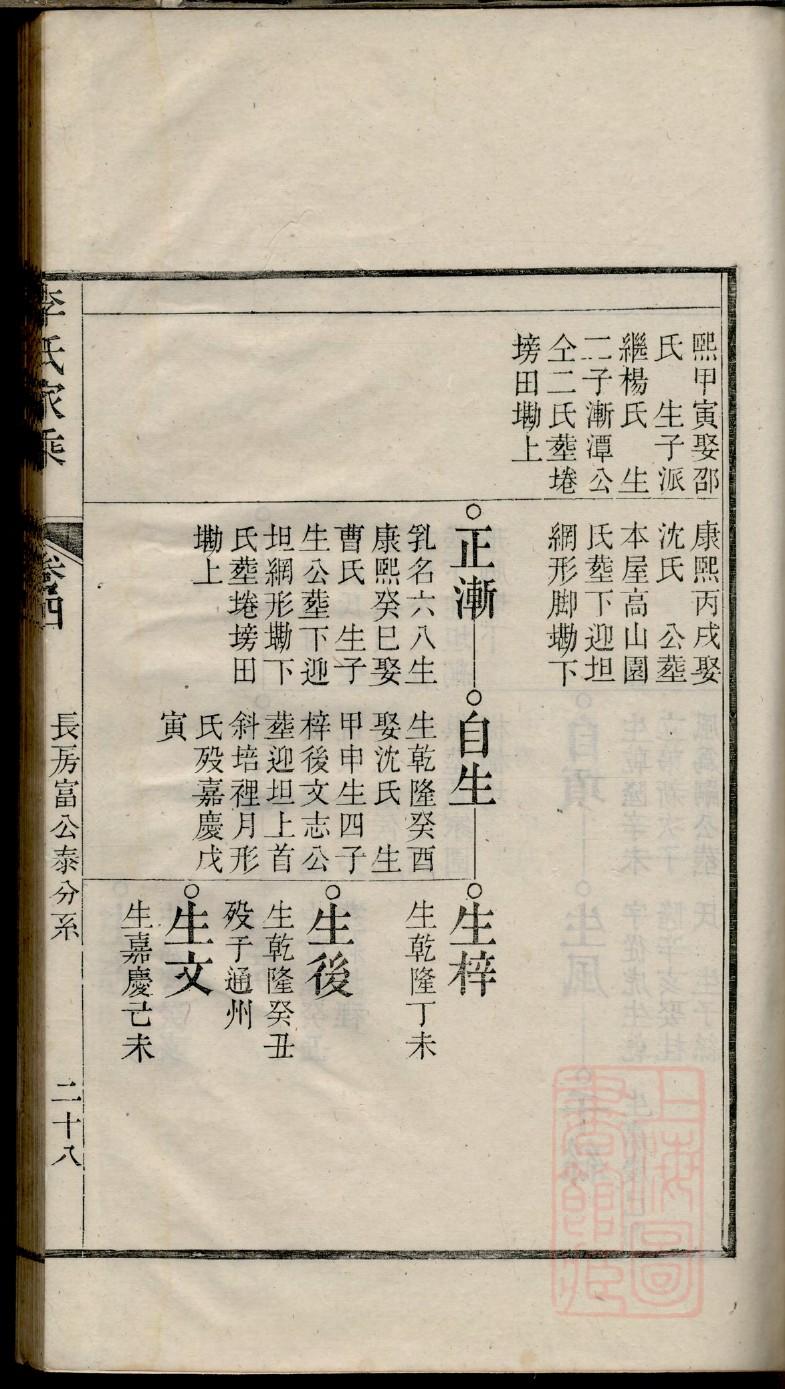 熙甲寅娶邵
氏　生子派
繼楊氏　生
二子漸潭公
仝二氏葬埢
塝田墈上
康熙丙戌娶
沈氏　公葬
本屋高山園
氏葬下迎坦
網形脚墈下
正漸
乳名六八生
康熙癸巳娶
曹氏　生子
生公葬下迎
坦網形墈下
氏葬埢塝田
墈上
自生
生乾隆癸酉
娶沈氏　生
甲申生四子
梓後文志公
葬迎坦上首
斜培裡月形
氏殁嘉慶戊
寅
生梓
生乾隆丁未
生後
生乾隆癸丑
殁于通州
生文
生嘉慶己未
李氏家乘
卷四
長房富公泰分系
二十八
上海圖
書館藏